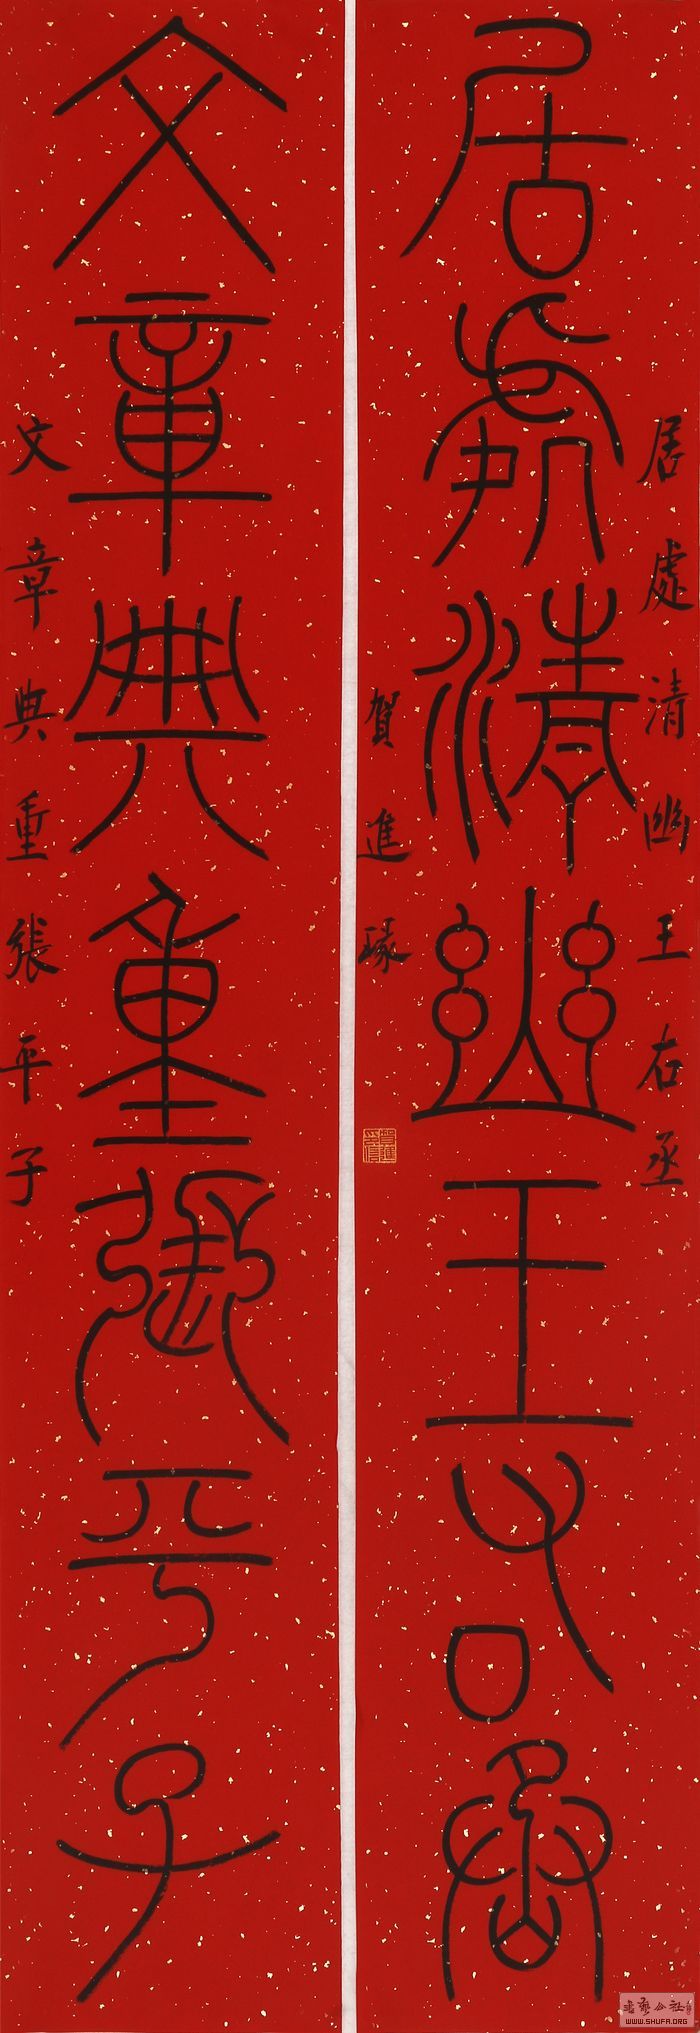 居處清幽王右丞
居處清幽王右丞
賀進琢
文章典重張平子
文章典重張平子
WWW.SHUFA.ORG